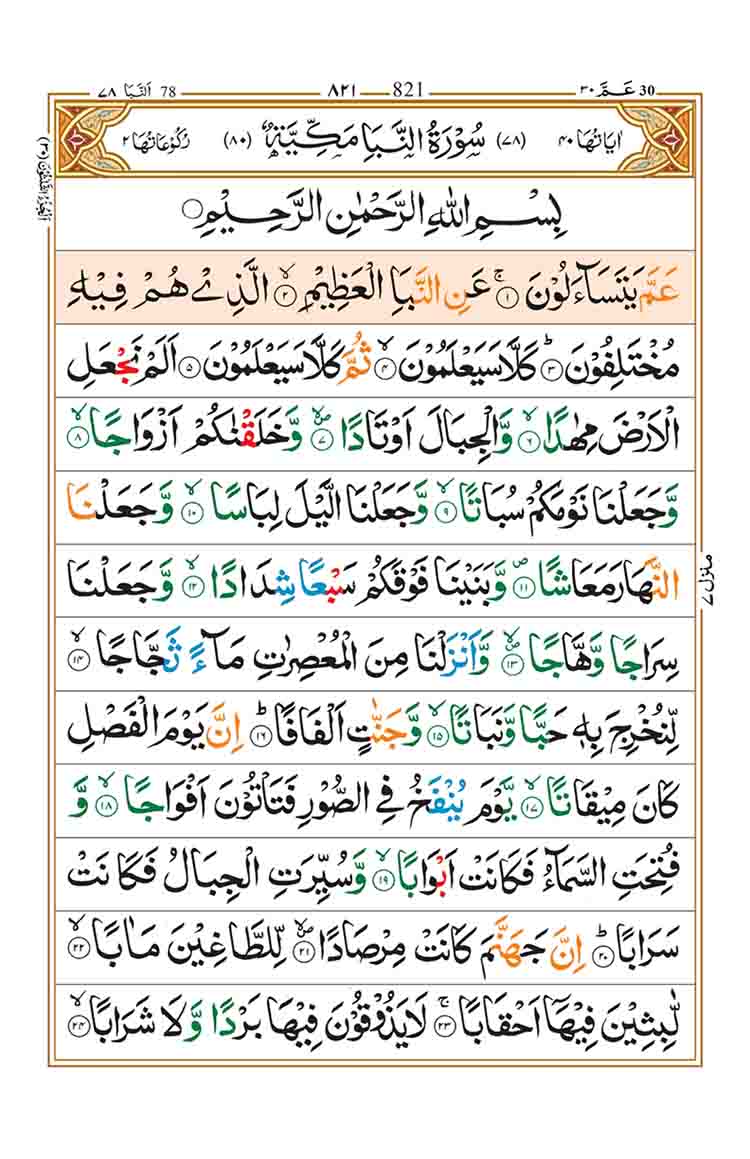 ٧٨ اَلنَّبَا 78 ٨٢١ 821 ٣٠ عَـمَّ 30
اٰيَاتُهَا ٤٠ (٧٨) سُوْرَةُ النَّبَاِ مَكِّيَّةٌ (٨٠) رُكُوْعَاتُهَا ٢
بِسْمِ اللّٰهِ الرَّحْمٰنِ الرَّحِيْمِ
عَمَّ يَتَسَآءَلُوْنَ ۚ‏﴿١﴾ عَنِ النَّبَاِ الْعَظِيْمِ ۙ‏﴿٢﴾ الَّذِىْ هُمْ فِيْهِ
مُخْتَلِفُوْنَ ؕ‏﴿٣﴾ كَلَّا سَيَعْلَمُوْنَ ۙ‏﴿٤﴾ ثُمَّ كَلَّا سَيَعْلَمُوْنَ ﴿٥﴾ اَلَمْ نَجْعَلِ
الْاَرْضَ مِهٰدًا ۙ‏﴿٦﴾ وَّالْجِبَالَ اَوْتَادًا ۪ۙ‏﴿٧﴾ وَّخَلَقْنٰكُمْ اَزْوَاجًا ۙ‏﴿٨﴾
وَّجَعَلْنَا نَوْمَكُمْ سُبَاتًا ۙ‏﴿٩﴾ وَّجَعَلْنَا الَّيْلَ لِبَاسًا ۙ‏﴿١٠﴾ وَّجَعَلْنَا
النَّهَارَ مَعَاشًا ۪‏﴿١١﴾ وَّبَنَيْنَا فَوْقَكُمْ سَبْعًا شِدَادًا ۙ‏﴿١٢﴾ وَّجَعَلْنَا
سِرَاجًا وَّهَّاجًا ۪ۙ‏﴿١٣﴾ وَّاَنْزَلْنَا مِنَ الْمُعْصِرٰتِ مَآءً ثَجَّاجًا ۙ‏﴿١٤﴾
لِّنُخْرِجَ بِهٖ حَبًّا وَّنَبَاتًا ۙ‏﴿١٥﴾ وَّجَنّٰتٍ اَلْفَافًا ؕ‏﴿١٦﴾ اِنَّ يَوْمَ الْفَصْلِ
كَانَ مِيْقَاتًا ۙ‏﴿١٧﴾ يَّوْمَ يُنْفَخُ فِى الصُّوْرِ فَتَاْتُوْنَ اَفْوَاجًا ۙ‏﴿١٨﴾ وَّ
فُتِحَتِ السَّمَآءُ فَكَانَتْ اَبْوَابًا ۙ‏﴿١٩﴾ وَّسُيِّرَتِ الْجِبَالُ فَكَانَتْ
سَرَابًا ؕ‏﴿٢٠﴾ اِنَّ جَهَنَّمَ كَانَتْ مِرْصَادًا ۪ۙ‏﴿٢١﴾ لِّلطَّاغِيْنَ مَاٰبًا ۙ‏﴿٢٢﴾
لّٰبِثِيْنَ فِيْهَاۤ اَحْقَابًا ۚ‏﴿٢٣﴾ لَا يَذُوْقُوْنَ فِيْهَا بَرْدًا وَّلَا شَرَابًا ۙ‏﴿٢٤﴾
اَلْجُزْءُ الثَّلٰثُوْنَ (٣٠)
منزل ٧